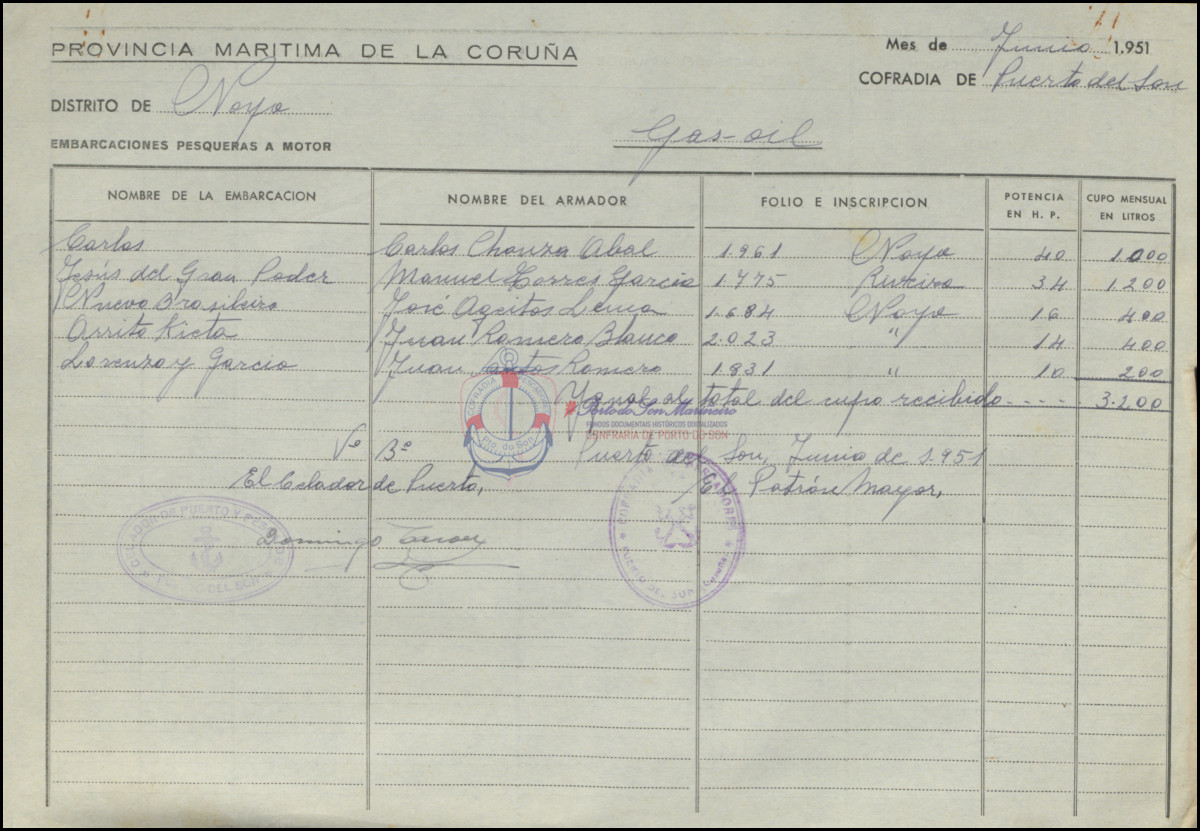 PROVINCIA MARITIMA DE LA CORUÑA
Mes de Junio 1.951
COFRADIA DE Puerto del Son
DISTRITO DE Noya
Gas-oil
EMBARCACIONES PESQUERAS A MOTOR
NOMBRE DE LA EMBARCACION NOMBRE DEL ARMADOR FOLIO E INSCRIPCION POTENCIA EN H. P. CUPO MENSUAL EN LITROS
Carlos Carlos Chouza Abal 1.961 Noya 40 1.000
Jesús del Gran Poder Manuel Torres Garcia 1475 Riveira 34 1.200
Nuevo Brasileiro José Ageitos Lema 1.684 Noya 16 400
Arrita Kieta Juan Romero Blanco 2.023 " 14 400
Lorenzo y Garcia Juan Santos Romero 1.831 " 10 200
Ygual al total del cupo recibido----- 3.200
COFRADIA PESCADORES
Pto. do Son
Porto do Son Marineiro
FONDOS DOCUMENTAIS HISTÓRICOS DIXITALIZADOS
CONFRARIA DE PORTO DO SON
Vº Bº Puerto del Son, Junio de 1.951
El Celador de Puerto, El Patrón Mayor,
CELADOR DE PUERTO Y PESCA DE
PUERTO DEL SON
Domingo
COFRADIA DE PESCADORES
PUERTO DEL SON (Coruña)